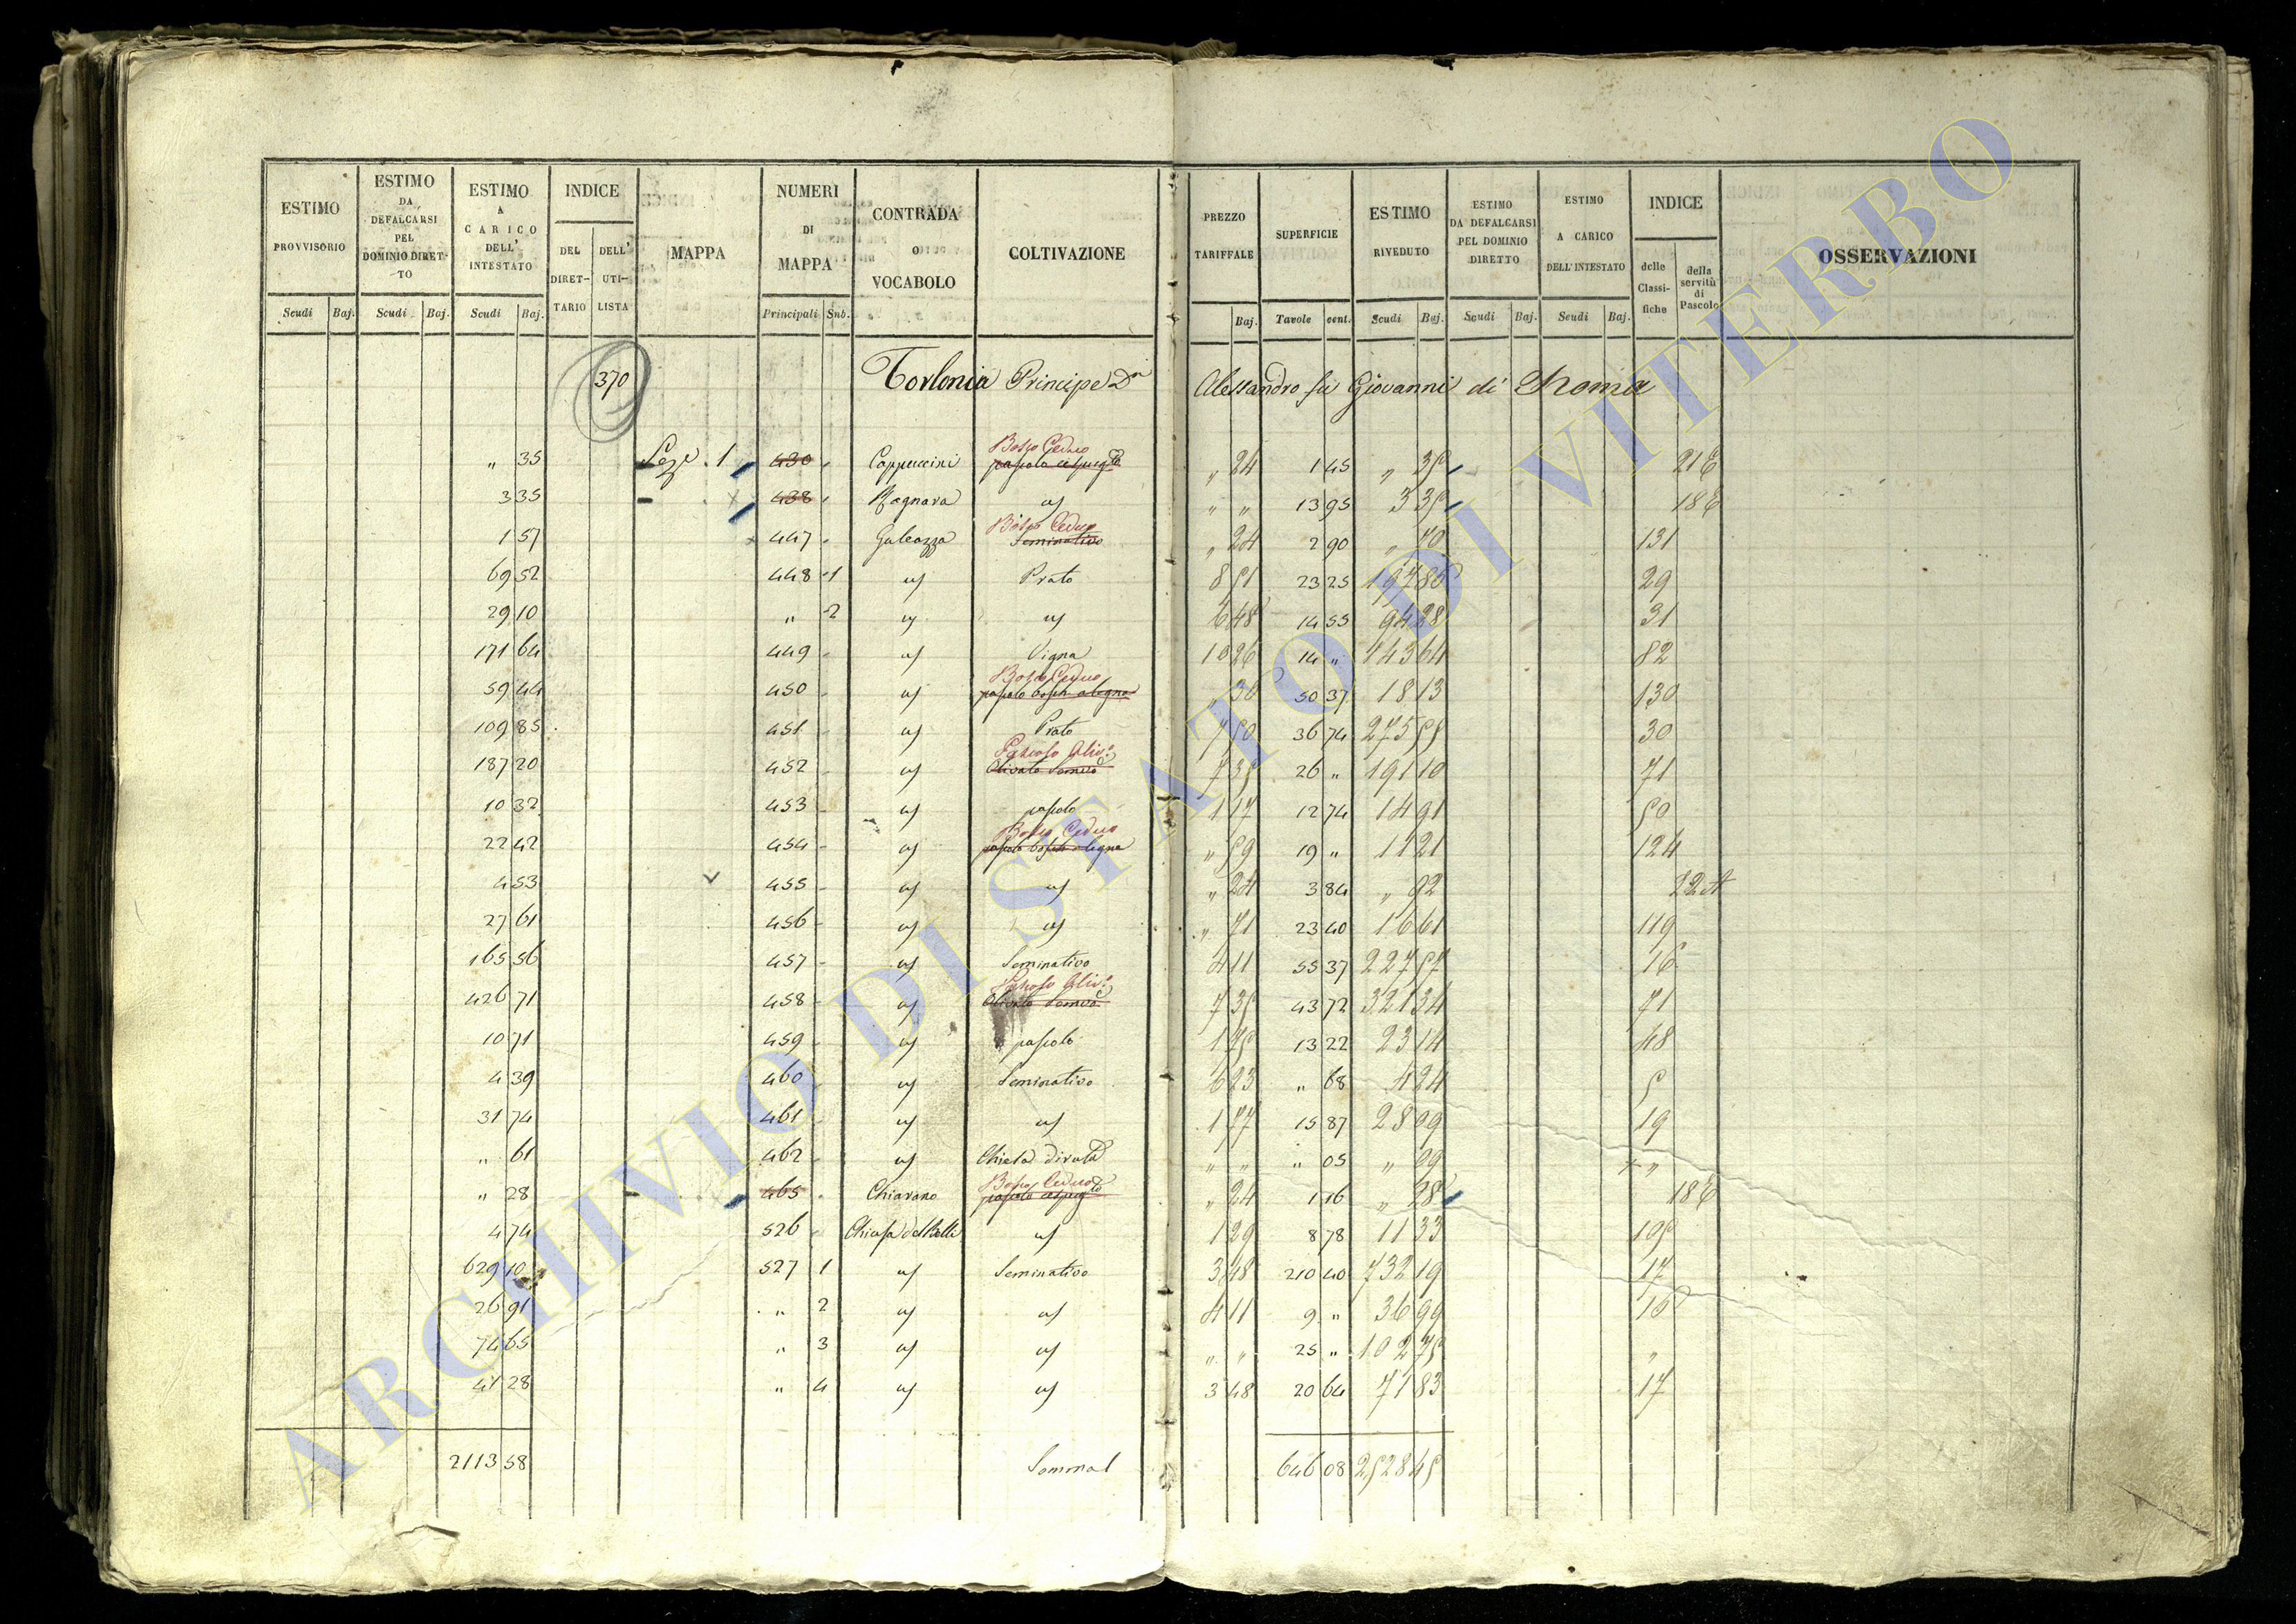 ESTIMO PROVVISORIO | ESTIMO DA DEFALCARSI PEL DOMINIO DIRETTO | ESTIMO A CARICO DELL' INTESTATO | INDICE | MAPPA | NUMERI DI MAPPA | CONTRADA O VOCABOLO | COLTIVAZIONE | PREZZO TARIFFALE | SUPERFICIE | ESTIMO RIVEDUTO | ESTIMO DA DEFALCARSI PEL DOMINIO DIRETTO | ESTIMO A CARICO DELL'INTESTATO | INDICE | OSSERVAZIONI
DEL DIRETTARIO | DELL' UTILISTA | delle Classifiche | della servitù di Pascolo
Scudi | Baj. | Scudi | Baj. | Scudi | Baj. | Principali | Sub. | Baj. | Tavole | cent. | Scudi | Baj. | Scudi | Baj. | Scudi | Baj.
370 Torlonia Principe Dn Alessandro fu Giovanni di Roma
Bosco Ceduo
" 35 1 430 Cappuccini " 24 1 45 " 35 21 E
3 35 438 Bagnara " " 13 95 3 35 18 E
Bosco Ceduo
1 57 447 Galeazza Seminativo " 24 2 90 " 70 131
69 52 448 1 Prato 8 51 23 25 197 86 29
29 10 " 2 6 48 14 55 94 28 31
171 64 449 Vigna 10 26 14 " 143 64 82
Bosco Ceduo
59 44 450 " 36 50 37 18 13 130
109 85 451 Prato 7 50 36 74 275 55 30
Pascolo Oliv.
187 20 452 7 35 26 " 191 10 71
10 32 453 pascolo 1 17 12 74 14 91 50
Bosco Ceduo
22 42 454 " 59 19 " 11 21 124
4 53 455 " 24 3 84 " 92 22 A
27 61 456 " 71 23 40 16 61 119
165 56 457 Seminativo 4 11 55 37 227 57 16
Pascolo Oliv.
426 71 458 7 35 43 72 321 34 71
10 71 459 pascolo 1 75 13 22 23 14 48
4 39 460 Seminativo 6 23 " 68 4 24 5
31 74 461 1 77 15 87 28 09 19
" 61 462 Chiesa diruta " " " 05 " 09 "
Bosco Ceduo
" 28 465 Chiavano " 24 1 16 " 28 18 E
4 74 526 1 29 8 78 11 33 105
629 10 527 1 Seminativo 3 48 210 40 732 19 17
26 91 " 2 4 11 9 " 36 99 16
74 65 " 3 " " 25 " 102 75 "
41 28 " 4 3 48 20 64 71 83 17
2113 58 Somma 646 08 2528 45
ARCHIVIO DI STATO DI VITERBO